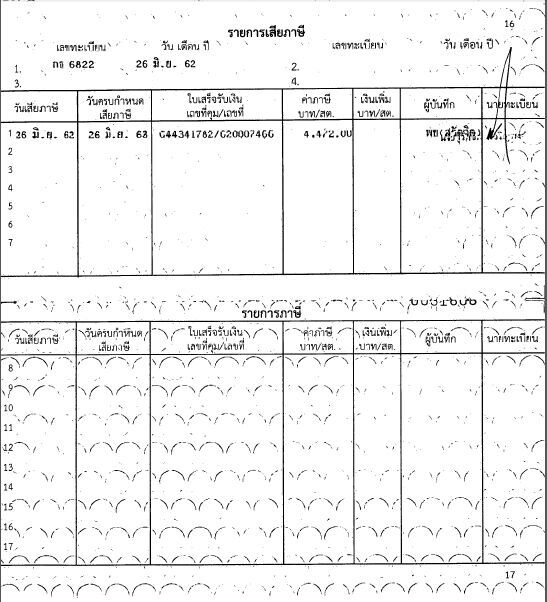 16
รายการเสียภาษี
เลขทะเบียน วัน เดือน ปี เลขทะเบียน วัน เดือน ปี
1. 6822 26 มิ.ย. 62 2.
3. 4.
วันเสียภาษี วันครบกำหนด ใบเสร็จรับเงิน ค่าภาษี เงินเพิ่ม ผู้บันทึก นายทะเบียน
เสียภาษี เลขที่คุม/เลขที่ บาท/สต. บาท/สต.
1 26 มิ.ย. 62 26 มิ.ย. 63 4,472.00
2
3
4
5
6
7
รายการภาษี
วันเสียภาษี วันครบกำหนด ใบเสร็จรับเงิน ค่าภาษี เงินเพิ่ม ผู้บันทึก นายทะเบียน
เสียภาษี เลขที่คุม/เลขที่ บาท/สต. บาท/สต.
8
9
10
11
12
13
14
15
16
17
17